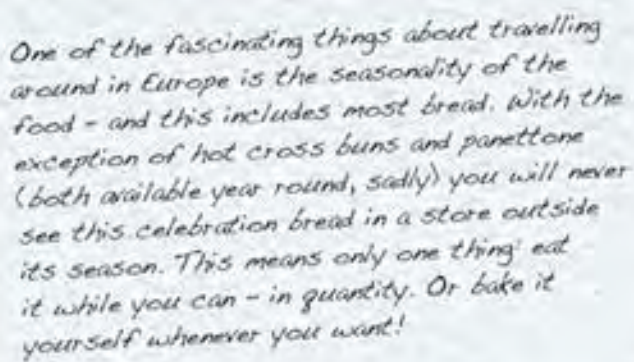 One of the fascinating things about travelling
around in Europe is the seasonality of the
food – and this includes most bread. With the
exception of hot cross buns and panettone
(both available year round, sadly) you will never
see this celebration bread in a store outside
its season. This means only one thing: eat
it while you can – in quantity. Or bake it
yourself whenever you want!